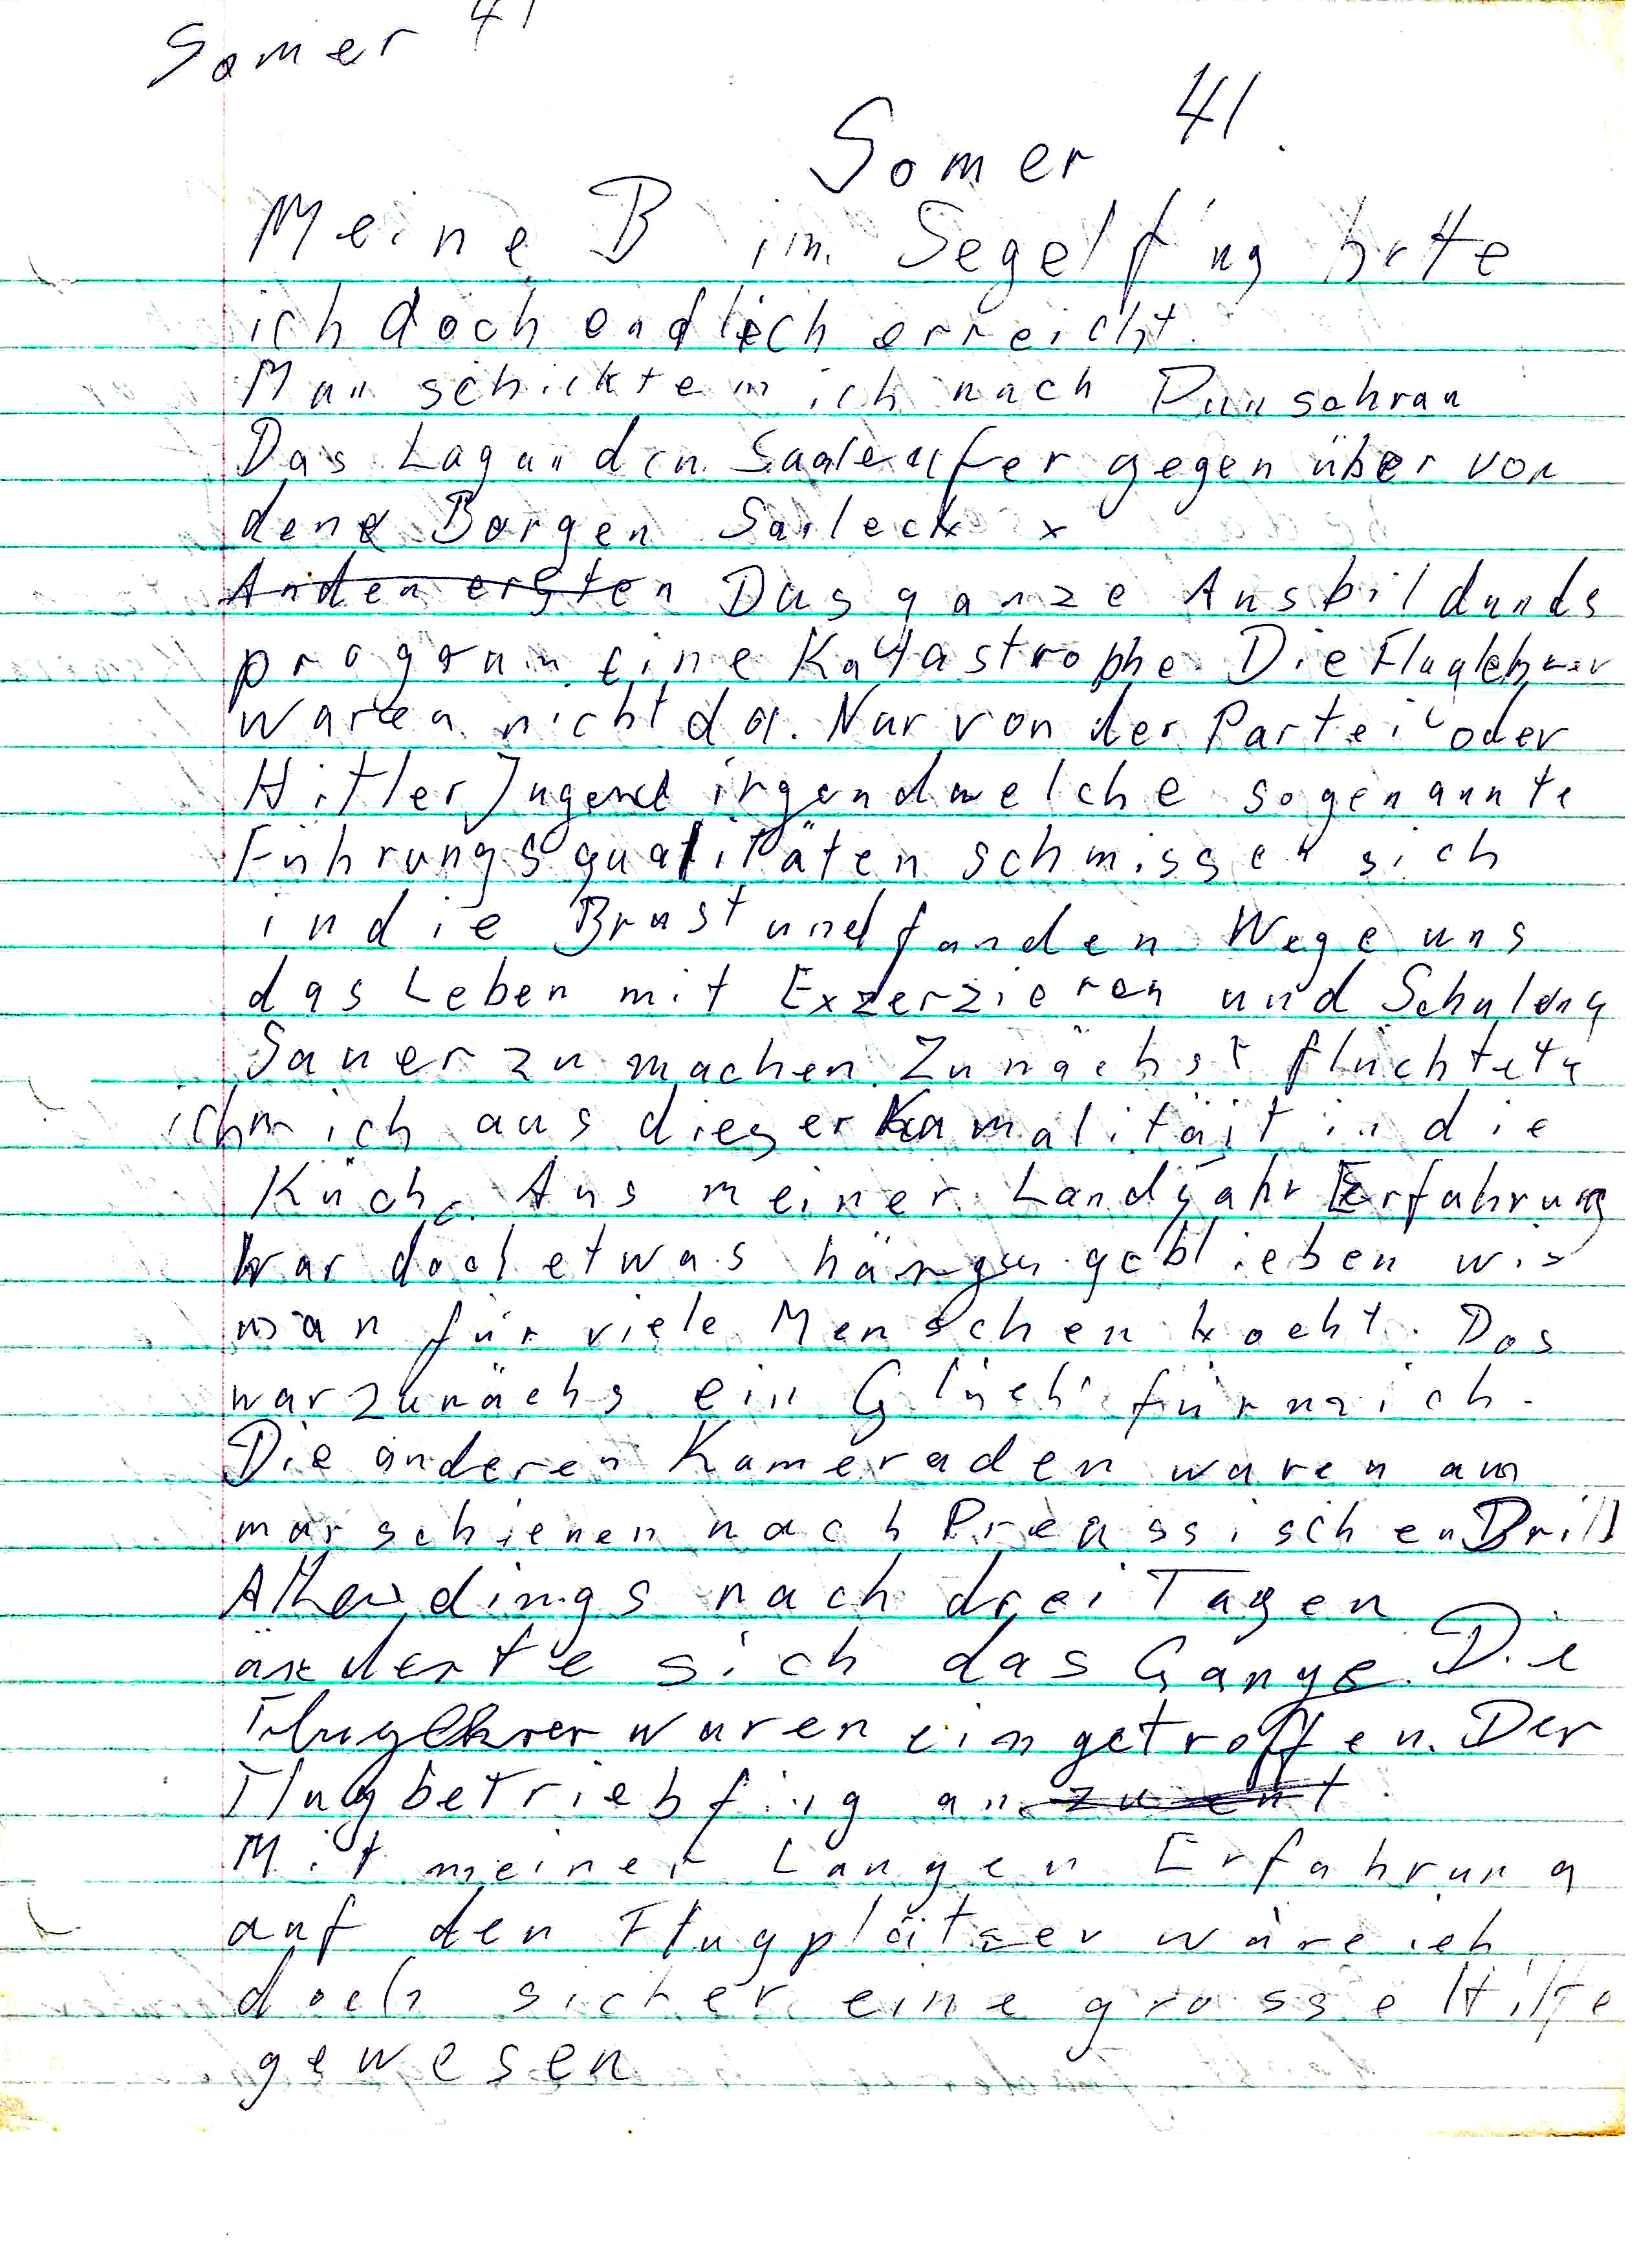 Somer 41
Somer 41.
Meine B im Segelflug hatte
ich doch endlich erreicht.
Man schickte mich nach
Das Lag an den Saaleufer gegenüber von
dene Borgen Saaleck x
An den ersten Das ganze Ausbildunds
program eine Katastrophe. Die Fluglehrer
waren nicht da. Nur von der Partei oder
Hitler Jugend irgendwelche sogenannte
Führungsqualitäten schmissen sich
in die Brust und fanden Wege uns
das Leben mit Exzerzieren und Schulung
Sauer zu machen. Zunächst flüchtete
ich mich aus dieser Kamalität in die
Küche. Aus meiner Landjahr Erfahrung
war doch etwas hängen geblieben wie
man für viele Menschen kocht. Das
war zunächs ein Glück für mich.
Die anderen Kameraden waren am
marschienen nach Preussischen Drill
Allerdings nach drei Tagen
änderte sich das Ganze. Die
Fluglehrer waren eingetroffen. Der
Flugbetrieb fing an
Mit meiner Langen Erfahrung
auf den Flugplätzen wäre ich
doch sicher eine grosse Hilfe
gewesen